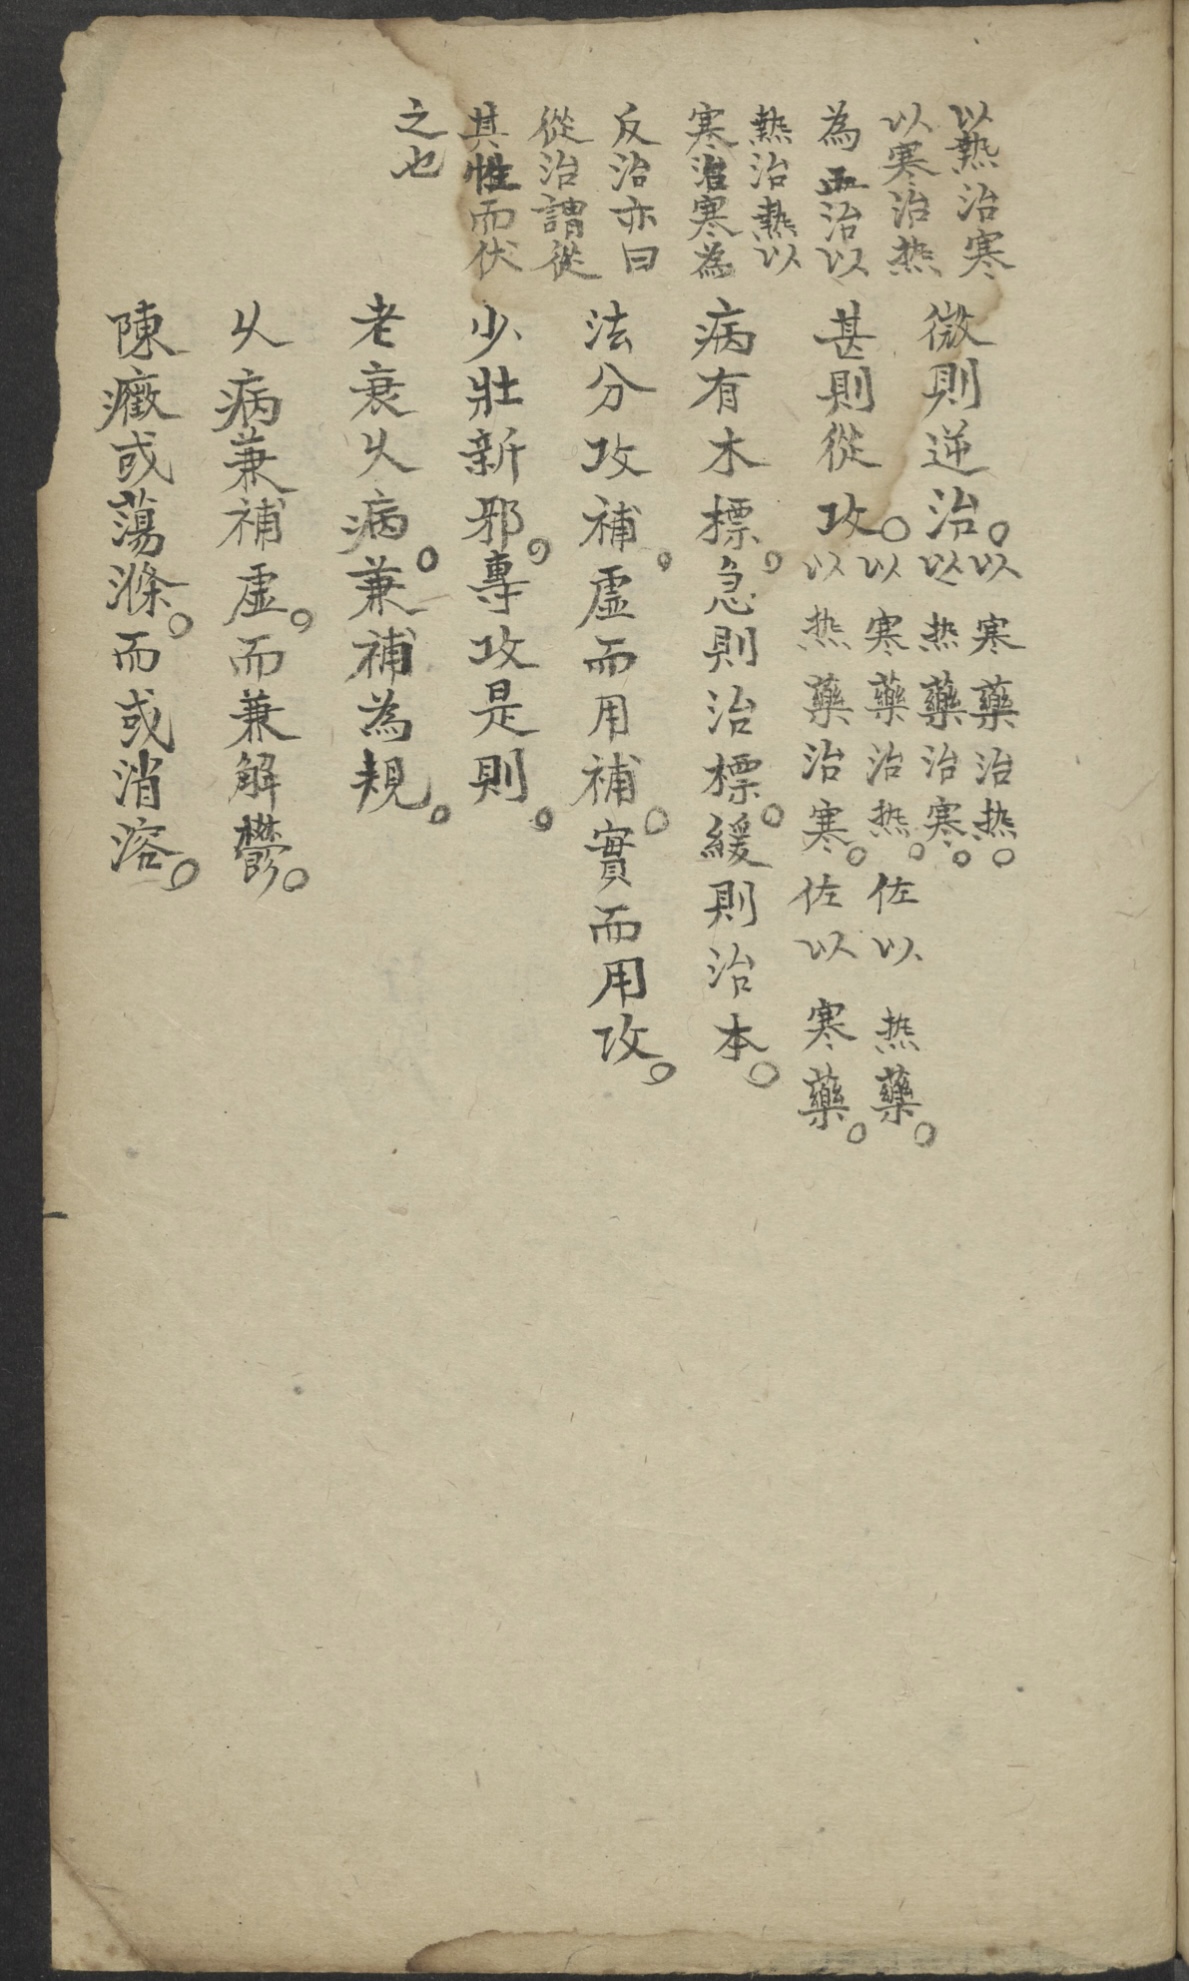 以熱治寒
以寒治热
為正治以
熱治熱以
寒治寒為
反治亦曰
從治謂從
其性而伏
之也
微則逆治。以寒藥治热。
以热藥治寒。
甚則從攻。以寒藥治热。佐以热藥。
以热藥治寒。佐以寒藥。
病有木標。急則治標。緩則治本。
法分攻補。虛而用補。實而用攻。
少壯新邪。專攻是則。
老衰乆病。兼補為規。
乆病兼補虛。而兼解鬱。
陳癥或蕩滌。而或消溶。